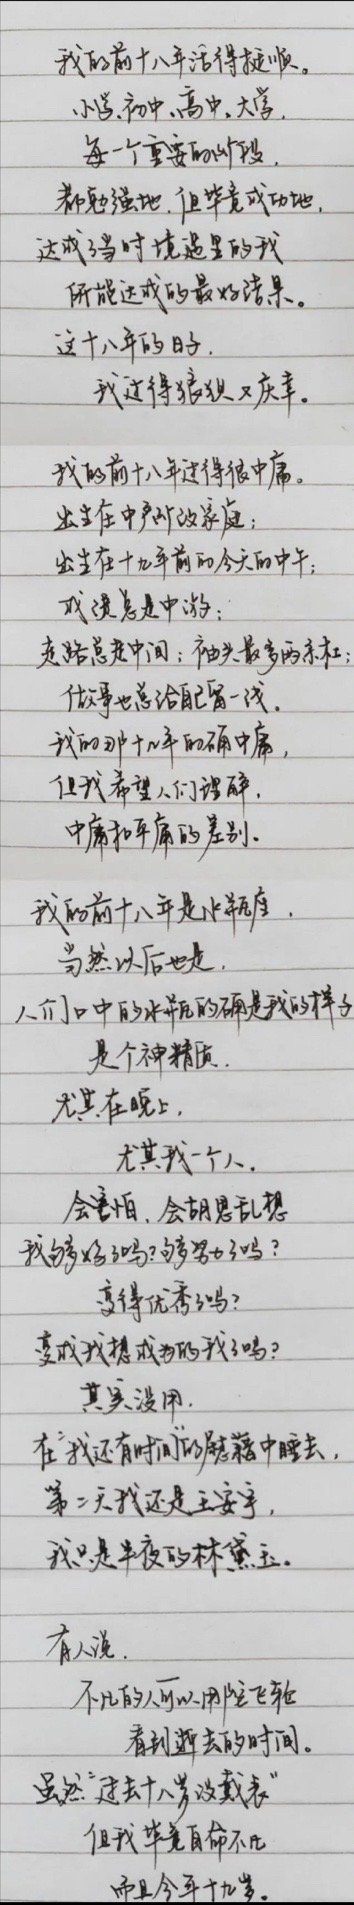 我的前十八年活得挺顺。
小学、初中、高中、大学，
每一个重要的阶段，
都勉强地，但毕竟成功地，
达成了当时境遇里的我
所能达成的最好结果。
这十八年的日子，
我过得狼狈又庆幸。
我的前十八年过得很中庸。
出生在中产阶级家庭；
出生在十九年前的今天的中午；
成绩总是中游；
走路总走中间；袖头最多两条杠；
做事也总给自己留一线。
我的那十八年的确中庸，
但我希望人们理解，
中庸和平庸的差别。
我的前十八年是水瓶座，
当然以后也是，
人们口中的水瓶的确是我的样子
是个神精质，
尤其在晚上，
尤其我一个人。
会害怕，会胡思乱想
我够好了吗？够努力了吗？
变得优秀了吗？
变成我想成为的我了吗？
其实没用，
在“我还有时间”的慰藉中睡去，
第二天我还是王安宇，
我只是半夜的林黛玉。
有人说，
不凡的人可以用陀飞轮
看到逝去的时间。
虽然“过去十八岁没戴表”
但我毕竟自命不凡
而且今年十九岁。